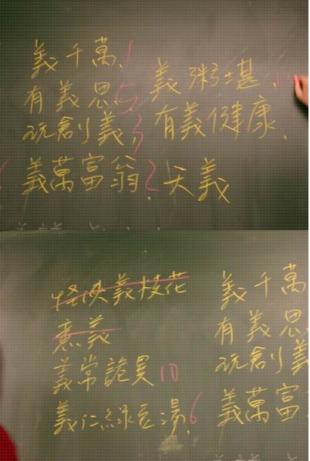 義千萬 1
有義思 5
玩創義 3
義萬富翁 2
義粥堪
有義健康
天義
義枝花
意義
義常詭異 10
義仁綠豆湯 6
義千萬
有義思
玩創義
義萬富